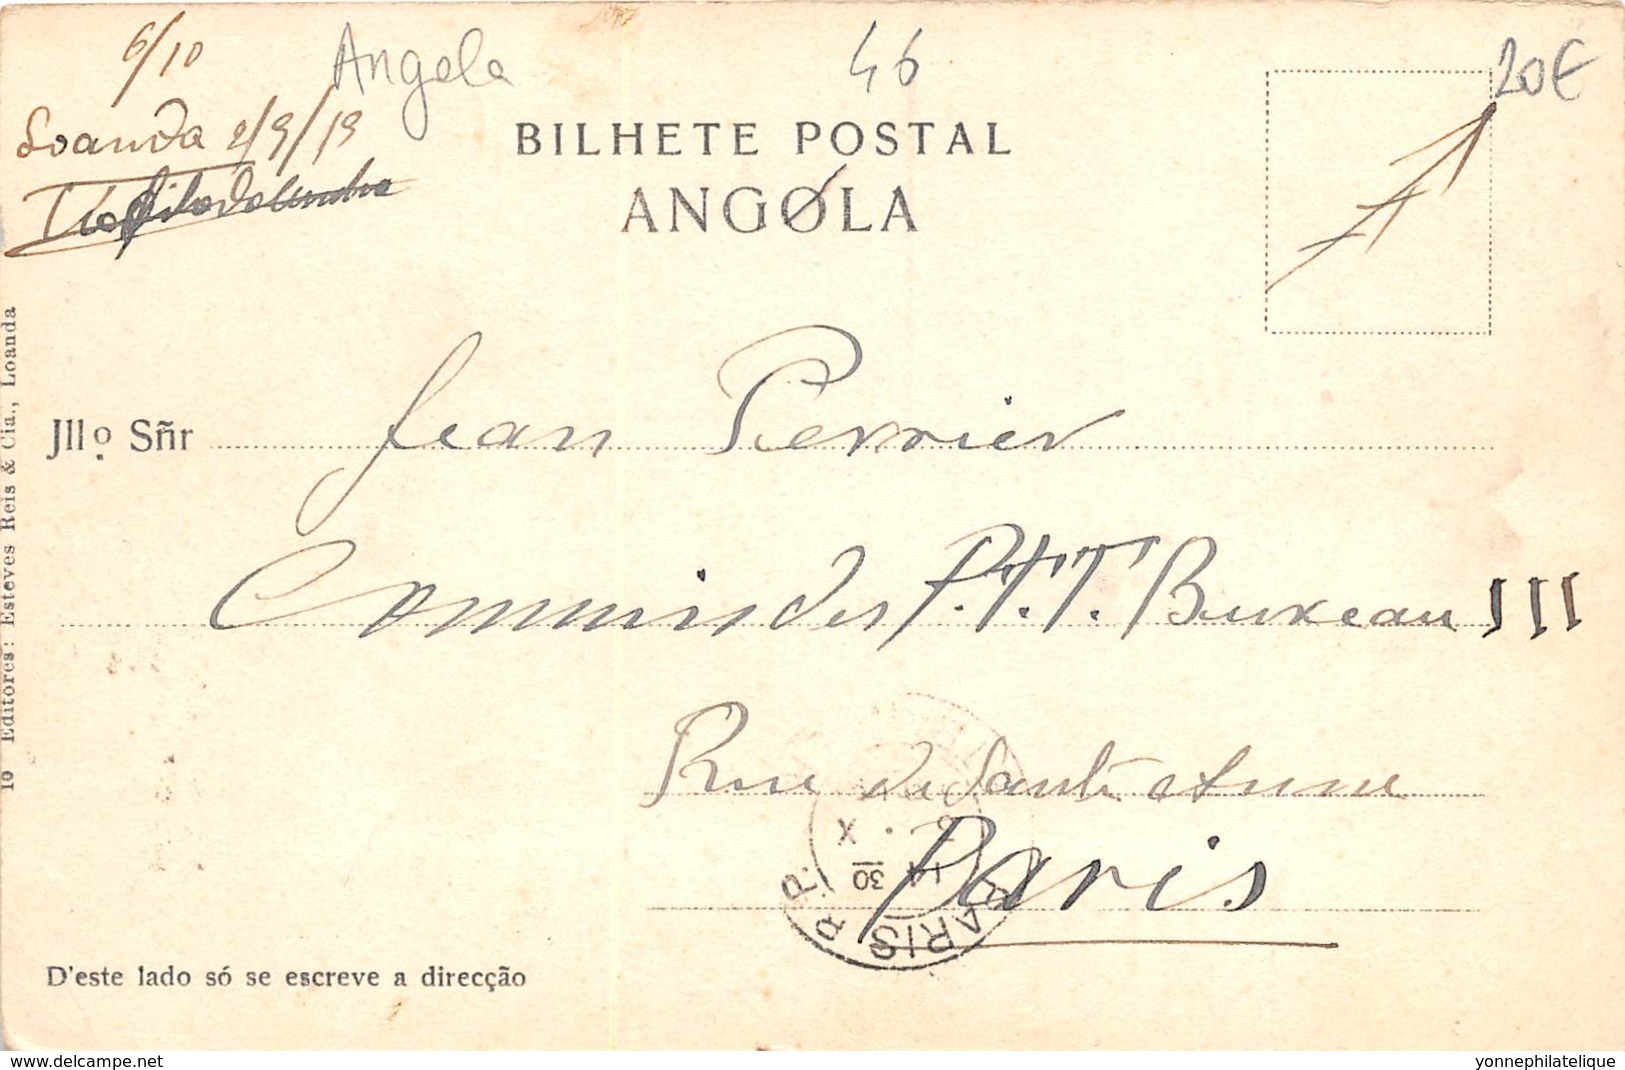 6/10
Angola
46
20€
Loanda 2/9/19
BILHETE POSTAL
ANGOLA
Jllº Sñr Jean Perrier
Commis des P.T.T. Bureau 111
Rue de
Paris
PARIS R.P.
14 30
X
D'este lado só se escreve a direcção
10 Editores: Esteves Reis & Cia., Loanda
www.delcampe.net
yonnephilatelique